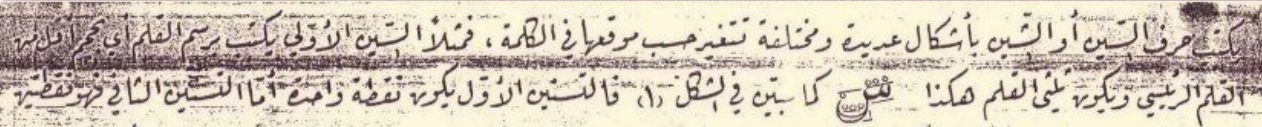 يكتب حرف السين أو الشين بأشكال عديدة ومختلفة تتغير حسب موقعها في الكلمة ، فمثلاً السين الأولى يكتب برسم القلم أي بحجم أقل من
القلم الرئيسي ويكون ثلثي القلم هكذا كما يبين في الشكل (١) فالتسنين الأول يكون نقطة واحدة أما التسنين الثاني فهو نقطتين